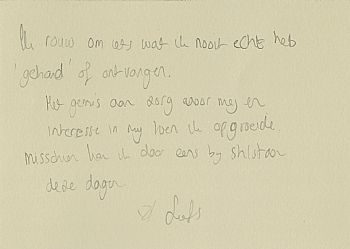 Ik rouw om iets wat ik nooit echt heb
'gehad' of ontvangen.
Het gemis aan zorg voor mij en
interesse in mij toen ik opgroeide.
Misschien kan ik daar eens bij stilstaan
deze dagen.
Liefs